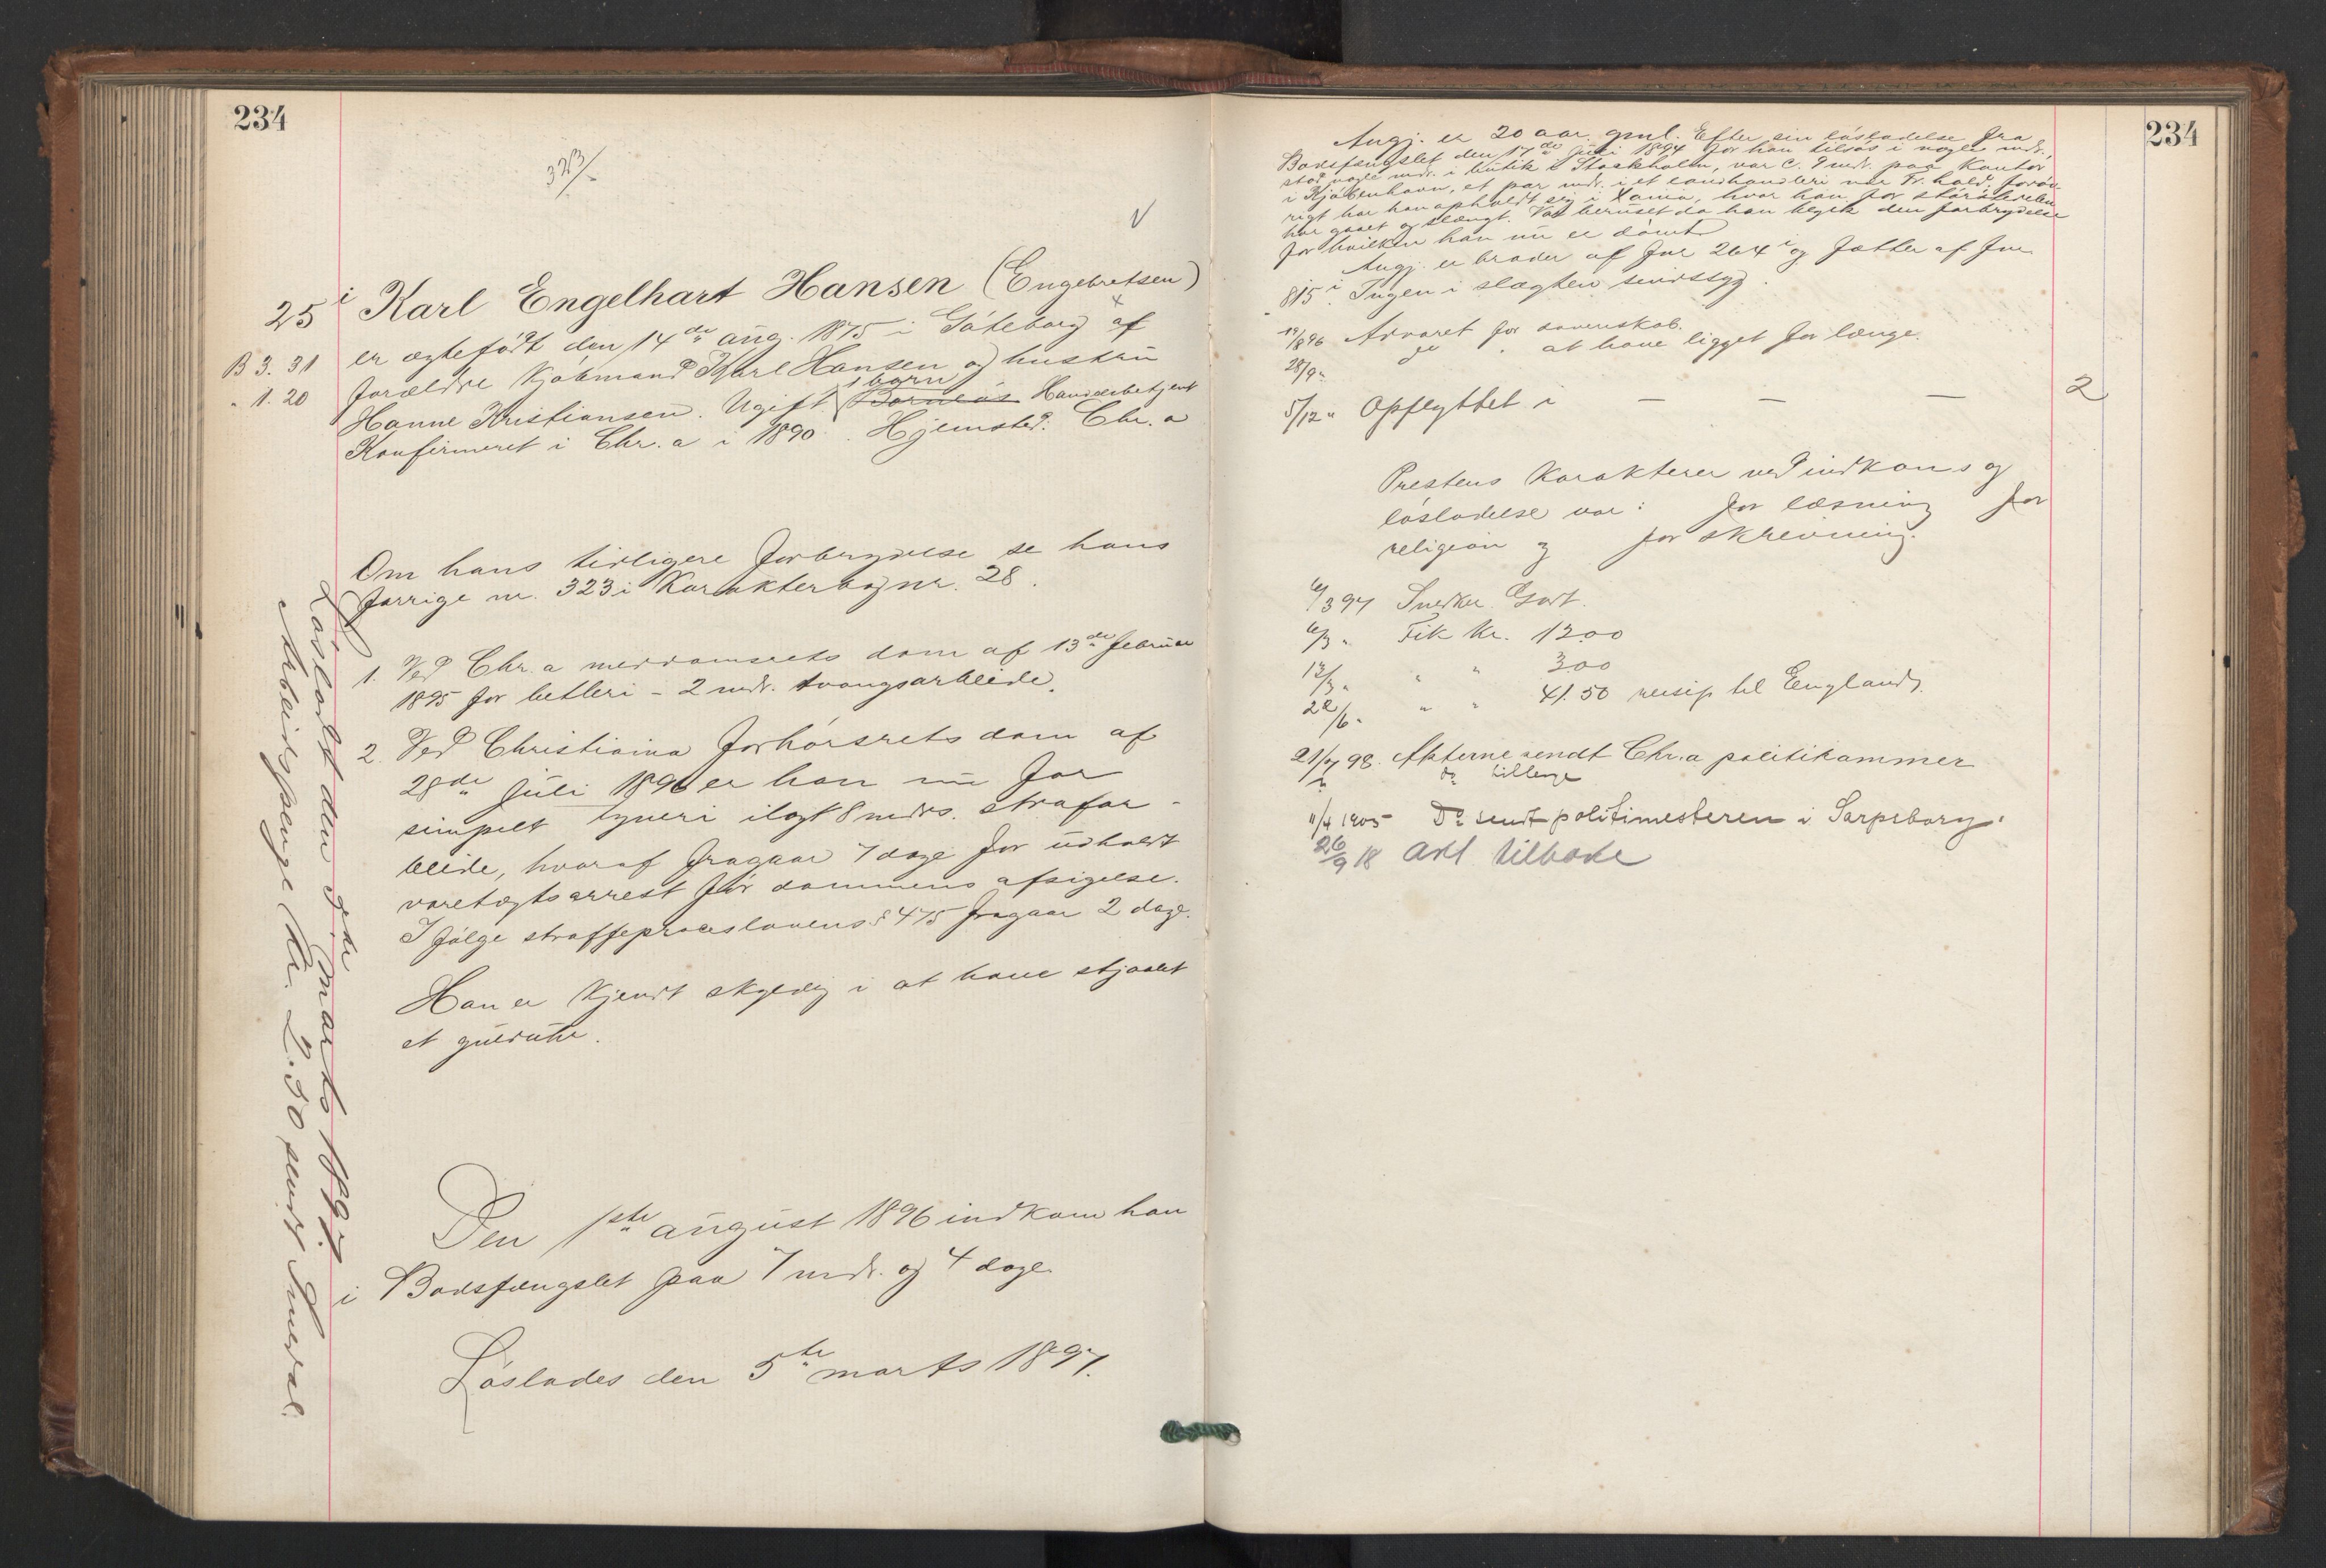 234
323/
V
25 i Karl Engelhart Hansen (Engebretsen)
B 3. 31 er ægtefødt den 14de aug. 1875 i Gøteborg af
" 1. 20 forældre Kjøbmand Karl Hansen og hustru
Hanne Kristiansen. Ugift 1 barn Barnløs Handelsbetjent
Konfirmeret i Chr.a i 1890. Hjemsted: Chr.a
Om hans tidligere forbrydelse se hans
forrige nr. 323 i Karakterbog nr. 28.
1. Ved Chr.a meddomsrets dom af 13de februar
1895 for betleri - 2 mdr. tvangsarbeide.
2. Ved Christiania forhørsrets dom af
28de juli 1896 er han nu for
simpelt tyveri ilagt 8 mdrs. strafar-
beide, hvoraf fragaar 7 dage for udholdt
varetægtsarrest før dommens afsigelse.
Ifølge straffeproceslovens § 475 fragaar 2 dage.
Han er kjendt skyldig i at have stjaalet
et gulduhr.
Den 1ste august 1896 indkom han
i Bodsfængslet paa 7 mdr. og 4 dage
Løslades den 5te marts 1897.
Løsladt den 5te marts 1897.
Arbeidspenge Kr. 2.50 sendt
234
Angj. er 20 aar gml. Efter sin løsladelse fra
Bodsfængslet den 17de juli 1894 for han tilsøs i nogle mdr.,
stod nogle mdr. i butik i Stockholm, var c. 9 mdr. paa Kontor
i Kjøbenhavn, et par mdr. i et landhandleri nær Fr.hald. forøv-
rigt har han opholdt sig i Xania, hvor han for størstedelen
har gaaet og slængt. Var beruset da han begik den forbrydelse
for hvilken han nu er dømt
Angj. er broder af fnr 264 i og fætter af fnr
815 i. Ingen i slægten sindssyg.
19/8 96 Advaret for dovenskab.
28/9 " do " at have ligget for længe.
5/12 " Opflyttet i — — — 2
Prestens Karakterer ved indkoms og
løsladelse var: for læsning for
religion og for skrivning.
6/3 97 Snedker Godt.
6/3 " Fik Kr. 12.00
13/3 " " " 3.00
22/6 " " " 41.50 reisep til England.
21/7 98. Akterne sendt Chr.a politikammer
do tilbage
11/4 1905 Do sendt politimesteren i Sarpsborg.
26/9 18 akt tilbake